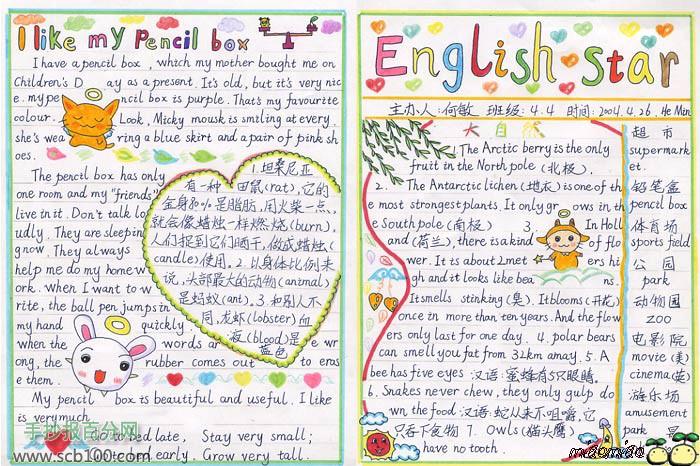 I like my Pencil box
I have a pencil box, which my mother bought me on
Children's D ay as a present. It's old, but it's very nic
e. my pe ncil box is purple. That's my favourite
colour. Look, Micky mousk is smiling at every.
she's wea ring a blue skirt and a pair of pink sh
oes.
The pencil box has only
one room and my "friends"
live in it. Don't talk lo
udly. They are sleeping
now. They always
help me do my home w
ork. When I want to w
rite, the ball pen jumps in
my hand quickly
when the words ar e wr
ong, the rubber comes out to eras
e them.
My pencil box is beautiful and useful. I like
is very much.
go to bed late, Stay very small;
early. Grow very tall.
1. 坦桑尼亚
有一种田鼠(rat),它的
全身80%是脂肪,用火柴一点,
就会像蜡烛一样燃烧(burn),
人们捉到它们晒干,做成蜡烛(
candle)使用。2. 以身体比例来
说,头部最大的动物(animal)
是蚂蚁(ant)。3. 和别人不
同,龙虾(lobster)血
液(blood)是
蓝色
手抄报百分网
www.scb100.com
English Star
主办人:何敏 班级:4.4 时间:2004.4.26. He Min
大自然
1. The Arctic berry is the only
fruit in the North pole (北极).
2. The Antarctic lichen (地衣) is one of th
e most strongest plants. It only gr ows in th
e South pole (南极) 3. In Holl
and (荷兰), there is a kind of flo
wer. It is about 2 met ers hi
gh and it looks like bea ns.
It smells stinking (臭). It blooms (开花)
once in more than ten years. And the flow
ers only last for one day. 4. polar bears
can smell you fat from 32km away. 5. A
bee has five eyes 汉语:蜜蜂有5只眼睛.
6. Snakes never chew, they only gulp do
wn the food 汉语:蛇从来不咀嚼,它
只吞下食物 7. Owls (猫头鹰)
have no tooth.
超市
supermark
et.
铅笔盒
pencil box
体育场
sports field
公园
park
动物园
ZOO
电影院
movie (美)
cinema (英)
游乐场
amusement
park